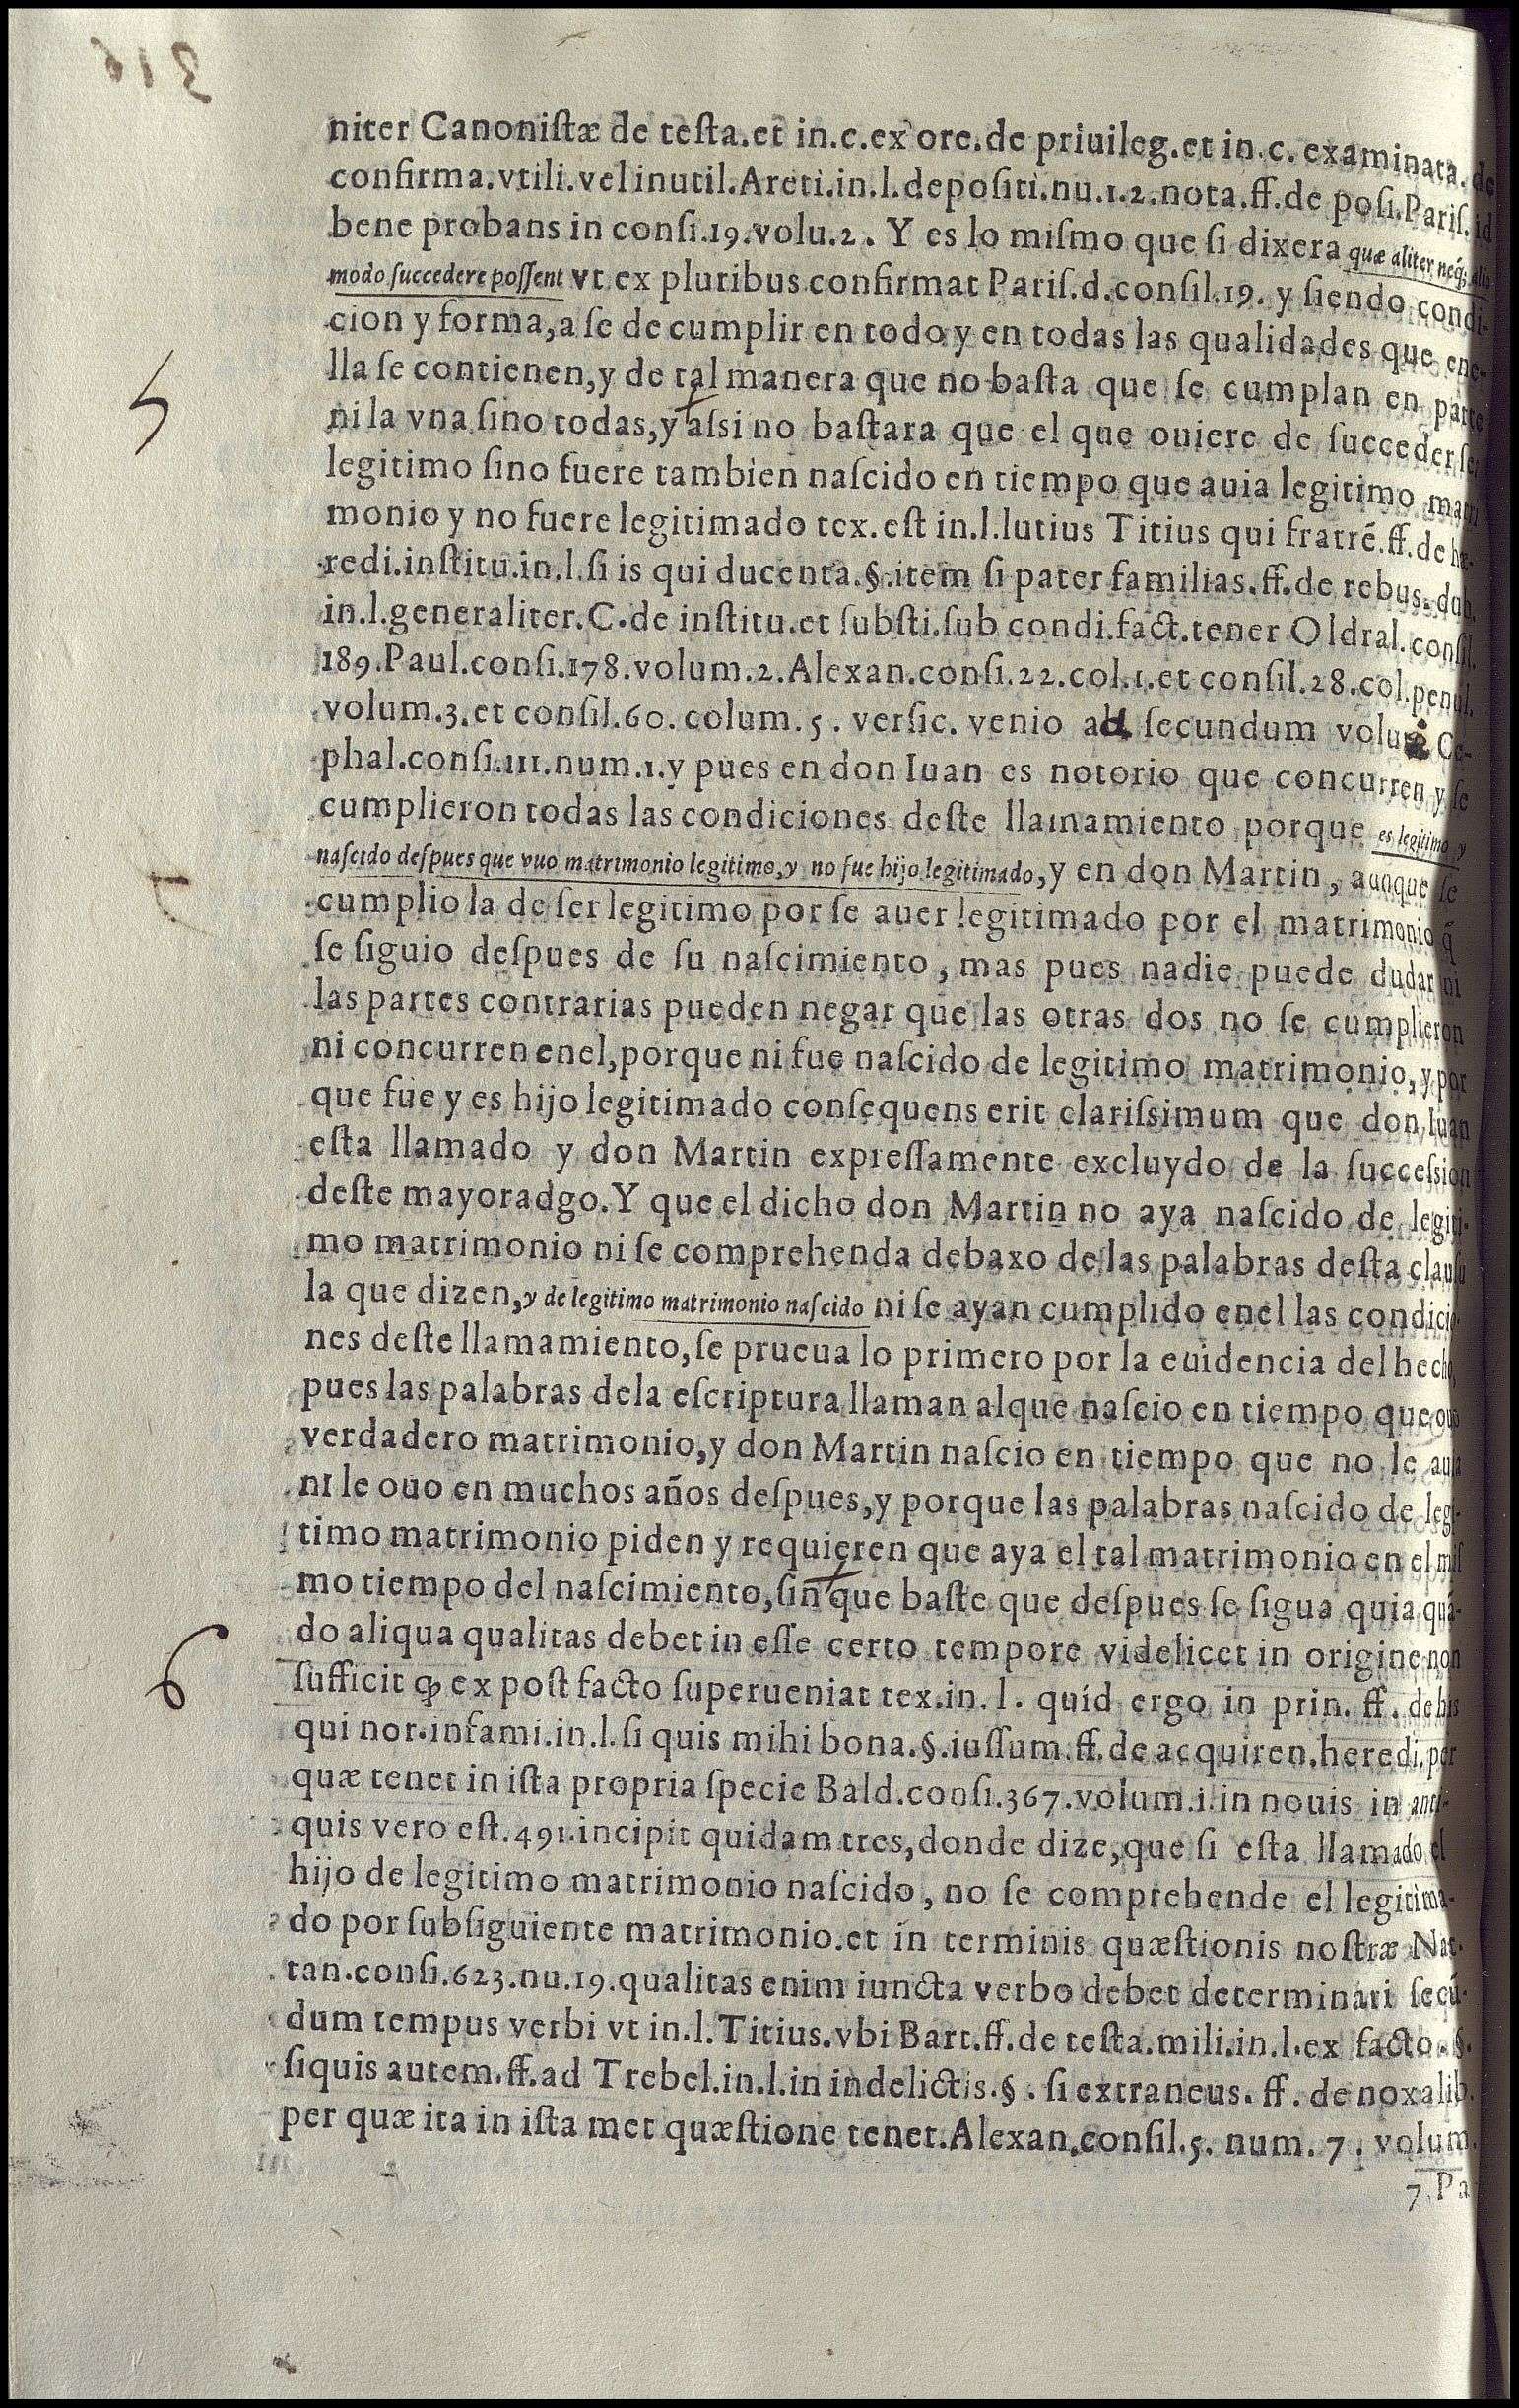 niter Canonistæ de testa.et in.c.ex ore.de priuileg.et in.c. examinata.de
confirma.vtili.vel inutil.Areti.in.l.depositi.nu.1.2.nota.ff.de posi.Paris.id
bene probans in consi.19.volu.2. Y es lo mismo que si dixera quæ aliter neq; alio
modo succedere possent vt ex pluribus confirmat Paris.d.consil.19. y siendo condi-
cion y forma, a se de cumplir en todo y en todas las qualidades que ene-
lla se contienen, y de tal manera que no basta que se cumplan en parte
5
ni la vna sino todas, y assi no bastara que el que ouiere de succeder sea
legitimo sino fuere tambien nascido en tiempo que auia legitimo matri
monio y no fuere legitimado tex.est in.l.lutius Titius qui fratrē.ff.de he-
redi.institu.in.l.si is qui ducenta.§.item si pater familias.ff.de rebus.dub.
in.l.generaliter.C.de institu.et substi.sub condi.fact.tener Oldral.consil.
189.Paul.consi.178.volum.2.Alexan.consi.22.col.1.et consil.28.col.penul.
volum.3.et consil.60.colum.5. versic. venio ad secundum volu. Ce-
phal.consi.111.num.1.y pues en don Iuan es notorio que concurren y se
cumplieron todas las condiciones deste llamamiento porque es legitimo y
nascido despues que vuo matrimonio legitimo, y no fue hijo legitimado, y en don Martin, aunque se
cumplio la de ser legitimo por se auer legitimado por el matrimonio q̃
se siguio despues de su nascimiento, mas pues nadie puede dudar ni
las partes contrarias pueden negar que las otras dos no se cumplieron
ni concurren enel, porque ni fue nascido de legitimo matrimonio, y por
que fue y es hijo legitimado consequens erit clarissimum que don Iuan
esta llamado y don Martin expressamente excluydo de la succession
deste mayoradgo. Y que el dicho don Martin no aya nascido de legiti-
mo matrimonio ni se comprehenda debaxo de las palabras desta clausu
la que dizen, y de legitimo matrimonio nascido ni se ayan cumplido enel las condicio-
nes deste llamamiento, se prueua lo primero por la euidencia del hecho,
pues las palabras dela escriptura llaman alque nascio en tiempo que ouo
verdadero matrimonio, y don Martin nascio en tiempo que no le auia
ni le ouo en muchos años despues, y porque las palabras nascido de legi-
timo matrimonio piden y requieren que aya el tal matrimonio en el mis
mo tiempo del nascimiento, sin que baste que despues se sigua quia quā-
do aliqua qualitas debet in esse certo tempore videlicet in origine non
6
sufficit ꝙ ex post facto superueniat tex.in.l. quid ergo in prin. ff. de his
qui not.infami.in.l.si quis mihi bona.§.iussum.ff.de acquiren.heredi.per
quæ tenet in ista propria specie Bald.consi.367.volum.1.in nouis in anti-
quis vero est.491.incipit quidam tres, donde dize, que si esta llamado el
hijo de legitimo matrimonio nascido, no se comprehende el legitima-
do por subsiguiente matrimonio.et in terminis quæstionis nostræ Nat-
tan.consi.623.nu.19.qualitas enim iuncta verbo debet determinari secū-
dum tempus verbi vt in.l.Titius.vbi Bart.ff.de testa.mili.in.l.ex facto.§.
siquis autem.ff.ad Trebel.in.l.in indelictis.§. si extraneus. ff. de noxalib.
per quæ ita in ista met quæstione tenet.Alexan.consil.5. num. 7. volum.
7. Pa